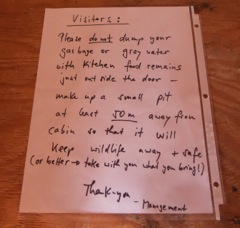 Visitors:
Please do not dump your
garbage or gray water
with kitchen food remains
just outside the door –
make up a small pit
at least 50m away from
cabin so that it will
keep wildlife away + safe
(or better → take with you what you bring!)
Thank-you
- Management